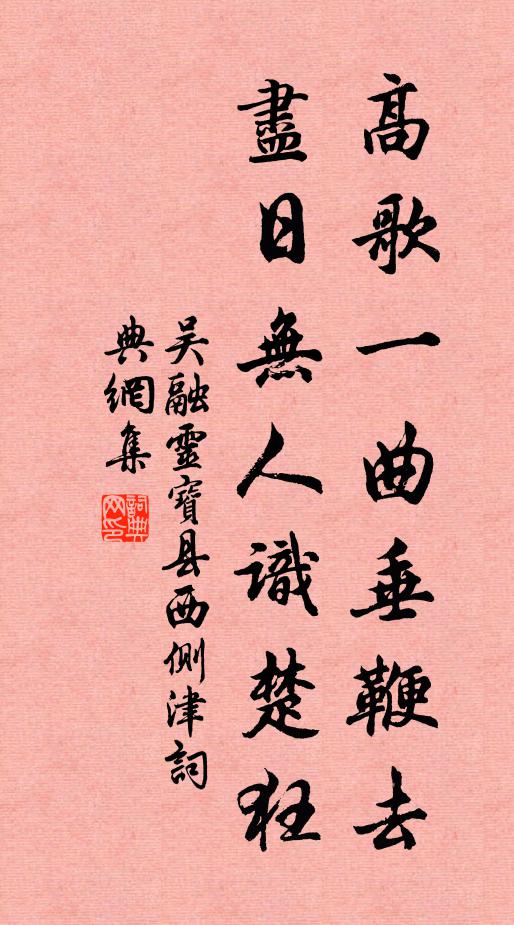 高歌一曲垂鞭去
盡日無人識楚狂
吴融靈寶县西侧津詞
典網集
詞典网印